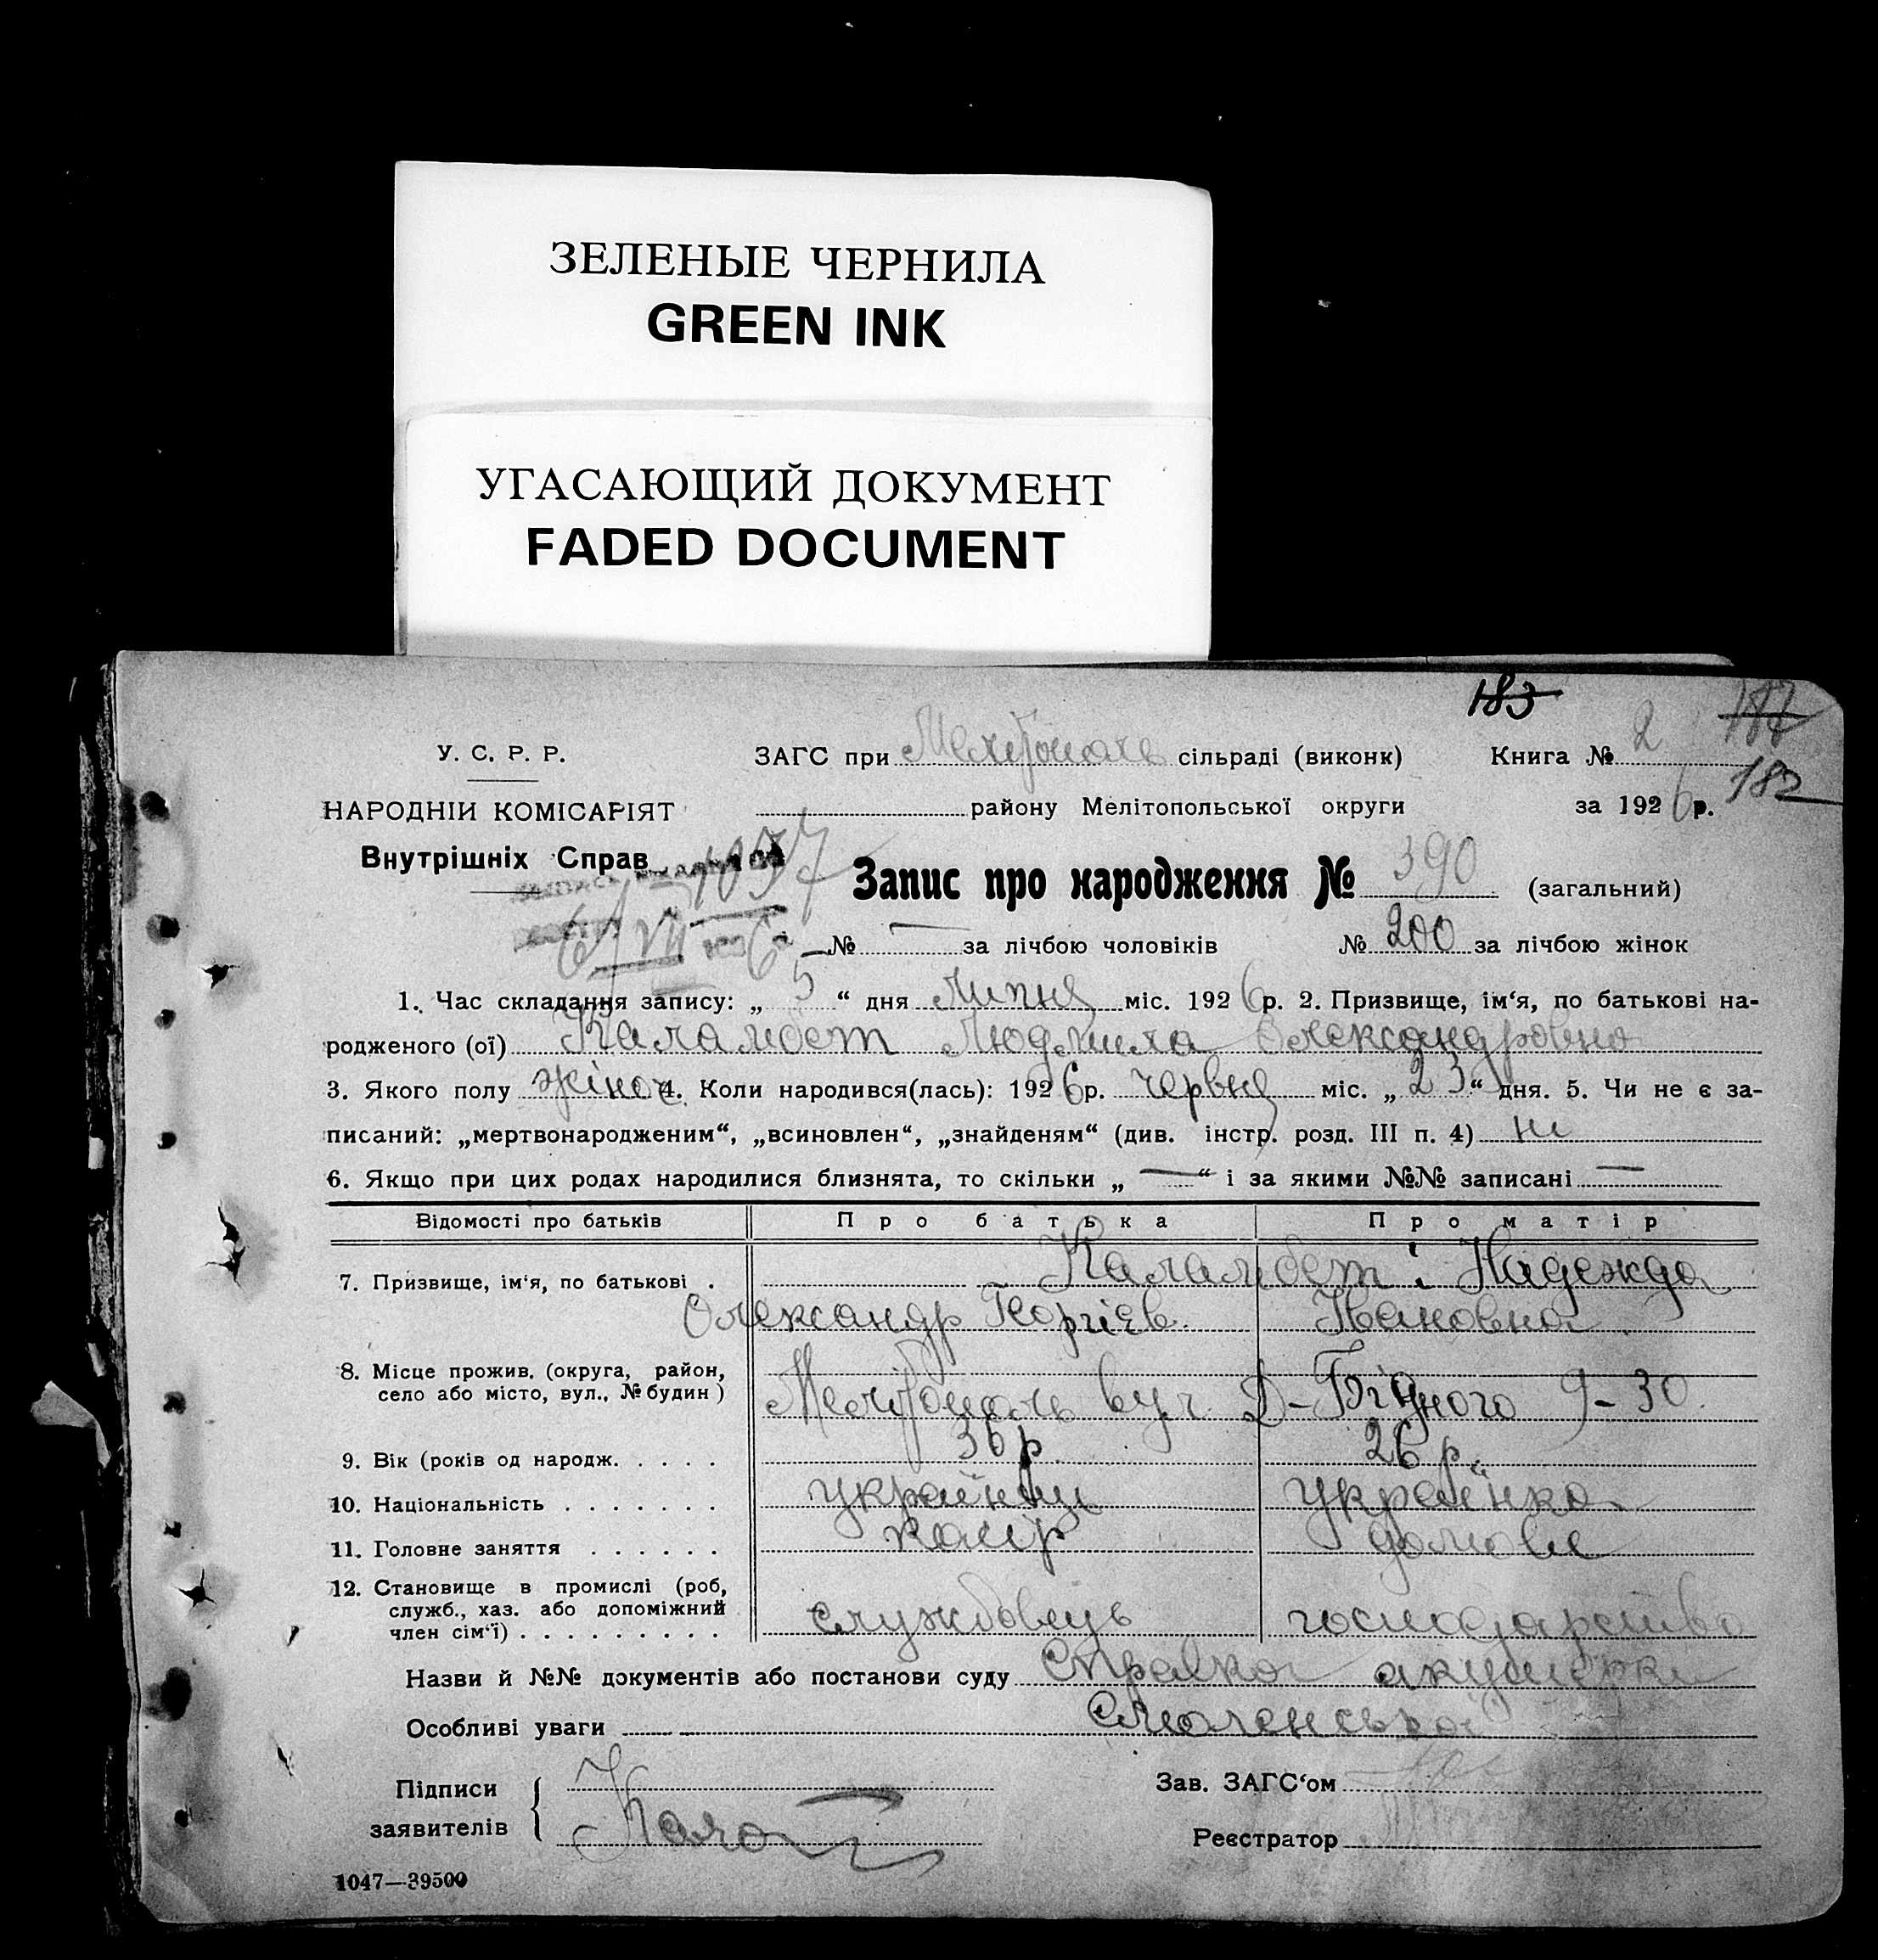 ЗЕЛЕНЫЕ ЧЕРНИЛА
GREEN INK
УГАСАЮЩИЙ ДОКУМЕНТ
FADED DOCUMENT
183 187
У. С. Р. Р. ЗАГС при сільраді (виконк) Книга № 2
182
НАРОДНІИ КОМІСАРІЯТ району Мелітопольської округи за 1926 р.
Внутрішніх Справ 1037 Запис про народження № 390 (загальний)
6/VII 6 № — за лічбою чоловіків № 200 за лічбою жінок
1. Час складання запису: „ 5 “ дня Липня міс. 1926 р. 2. Призвище, ім‘я, по батькові на-
родженого (ої) Каламбет Людмила Олександровна
3. Якого полу жіноч. 4. Коли народився(лась): 1926 р. червня міс. „ 23 “ дня. 5. Чи не є за-
писаний: „мертвонародженим“, „всиновлен“, „знайденям“ (див. інстр. розд. III п. 4) ні
6. Якщо при цих родах народилися близнята, то скільки „ — “ і за якими №№ записані —
Відомості про батьків Про батька Про матір
7. Призвище, ім‘я, по батькові . Каламбет : Надежда
Олександр Георгіев. Івановна
8. Місце прожив. (округа, район,
село або місто, вул., № будин) Мелітополь вул. Д-Бідного 9-30.
9. Вік (років од народж. . . . . 36 р. 26 р.
10. Національність . . . . . . . українець українка
11. Головне заняття . . . . . . касір домове
12. Становище в промислі (роб,
служб., хаз. або допоміжний
член сім‘ї) . . . . . . . . . службовець господарство
Назви й №№ документів або постанови суду Справка акушерки
Особливі уваги Смоленської
Підписи Зав. ЗАГС‘ом
заявителів Реєстратор
1047—39500